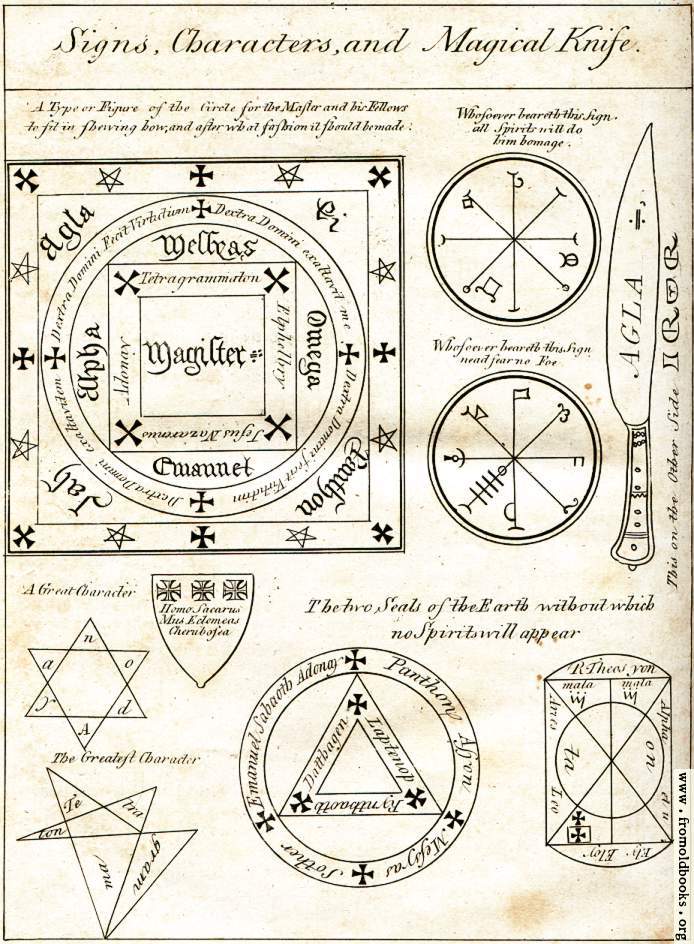 Signs, Characters, and Magical Knife.
A Type or Figure of the Circle for the Master and his Fellows
to sit in shewing how, and after what fashion it should be made:
Whosoever beareth this sign.
all Spirits will do
him homage.
AGLA
This on the Other Side
Agla
Dextra Domini Fecit Virtutium
Dextra Domini exaltavit me
Dextra Domini fecit Virtutim
Dextra Domini exaltandom
Messyas
Tetragrammaton
Alpha
Magister
Omega
Jesus Nazarenus
Emanuel
Jah
Panthon
Whosoever beareth this Sign
nead fear no Foe
A Great Character
n
o
d
A
a
Homo Sacarus
Mus Eclomeas
Cherubosca
The two Seals of the Earth without which
no Spirits will appear
Emanuel Sabaoth Adonay
Panthony
Messyas
Sother
Dattbagen
Laptenop
Ryntbaoth
The Greatest Character
Te
tra
gram
ma
ton
Theos yon
mala
mala
Alpha
on
et u
Ely. Eloy
Leo
ta
www.fromoldbooks.org